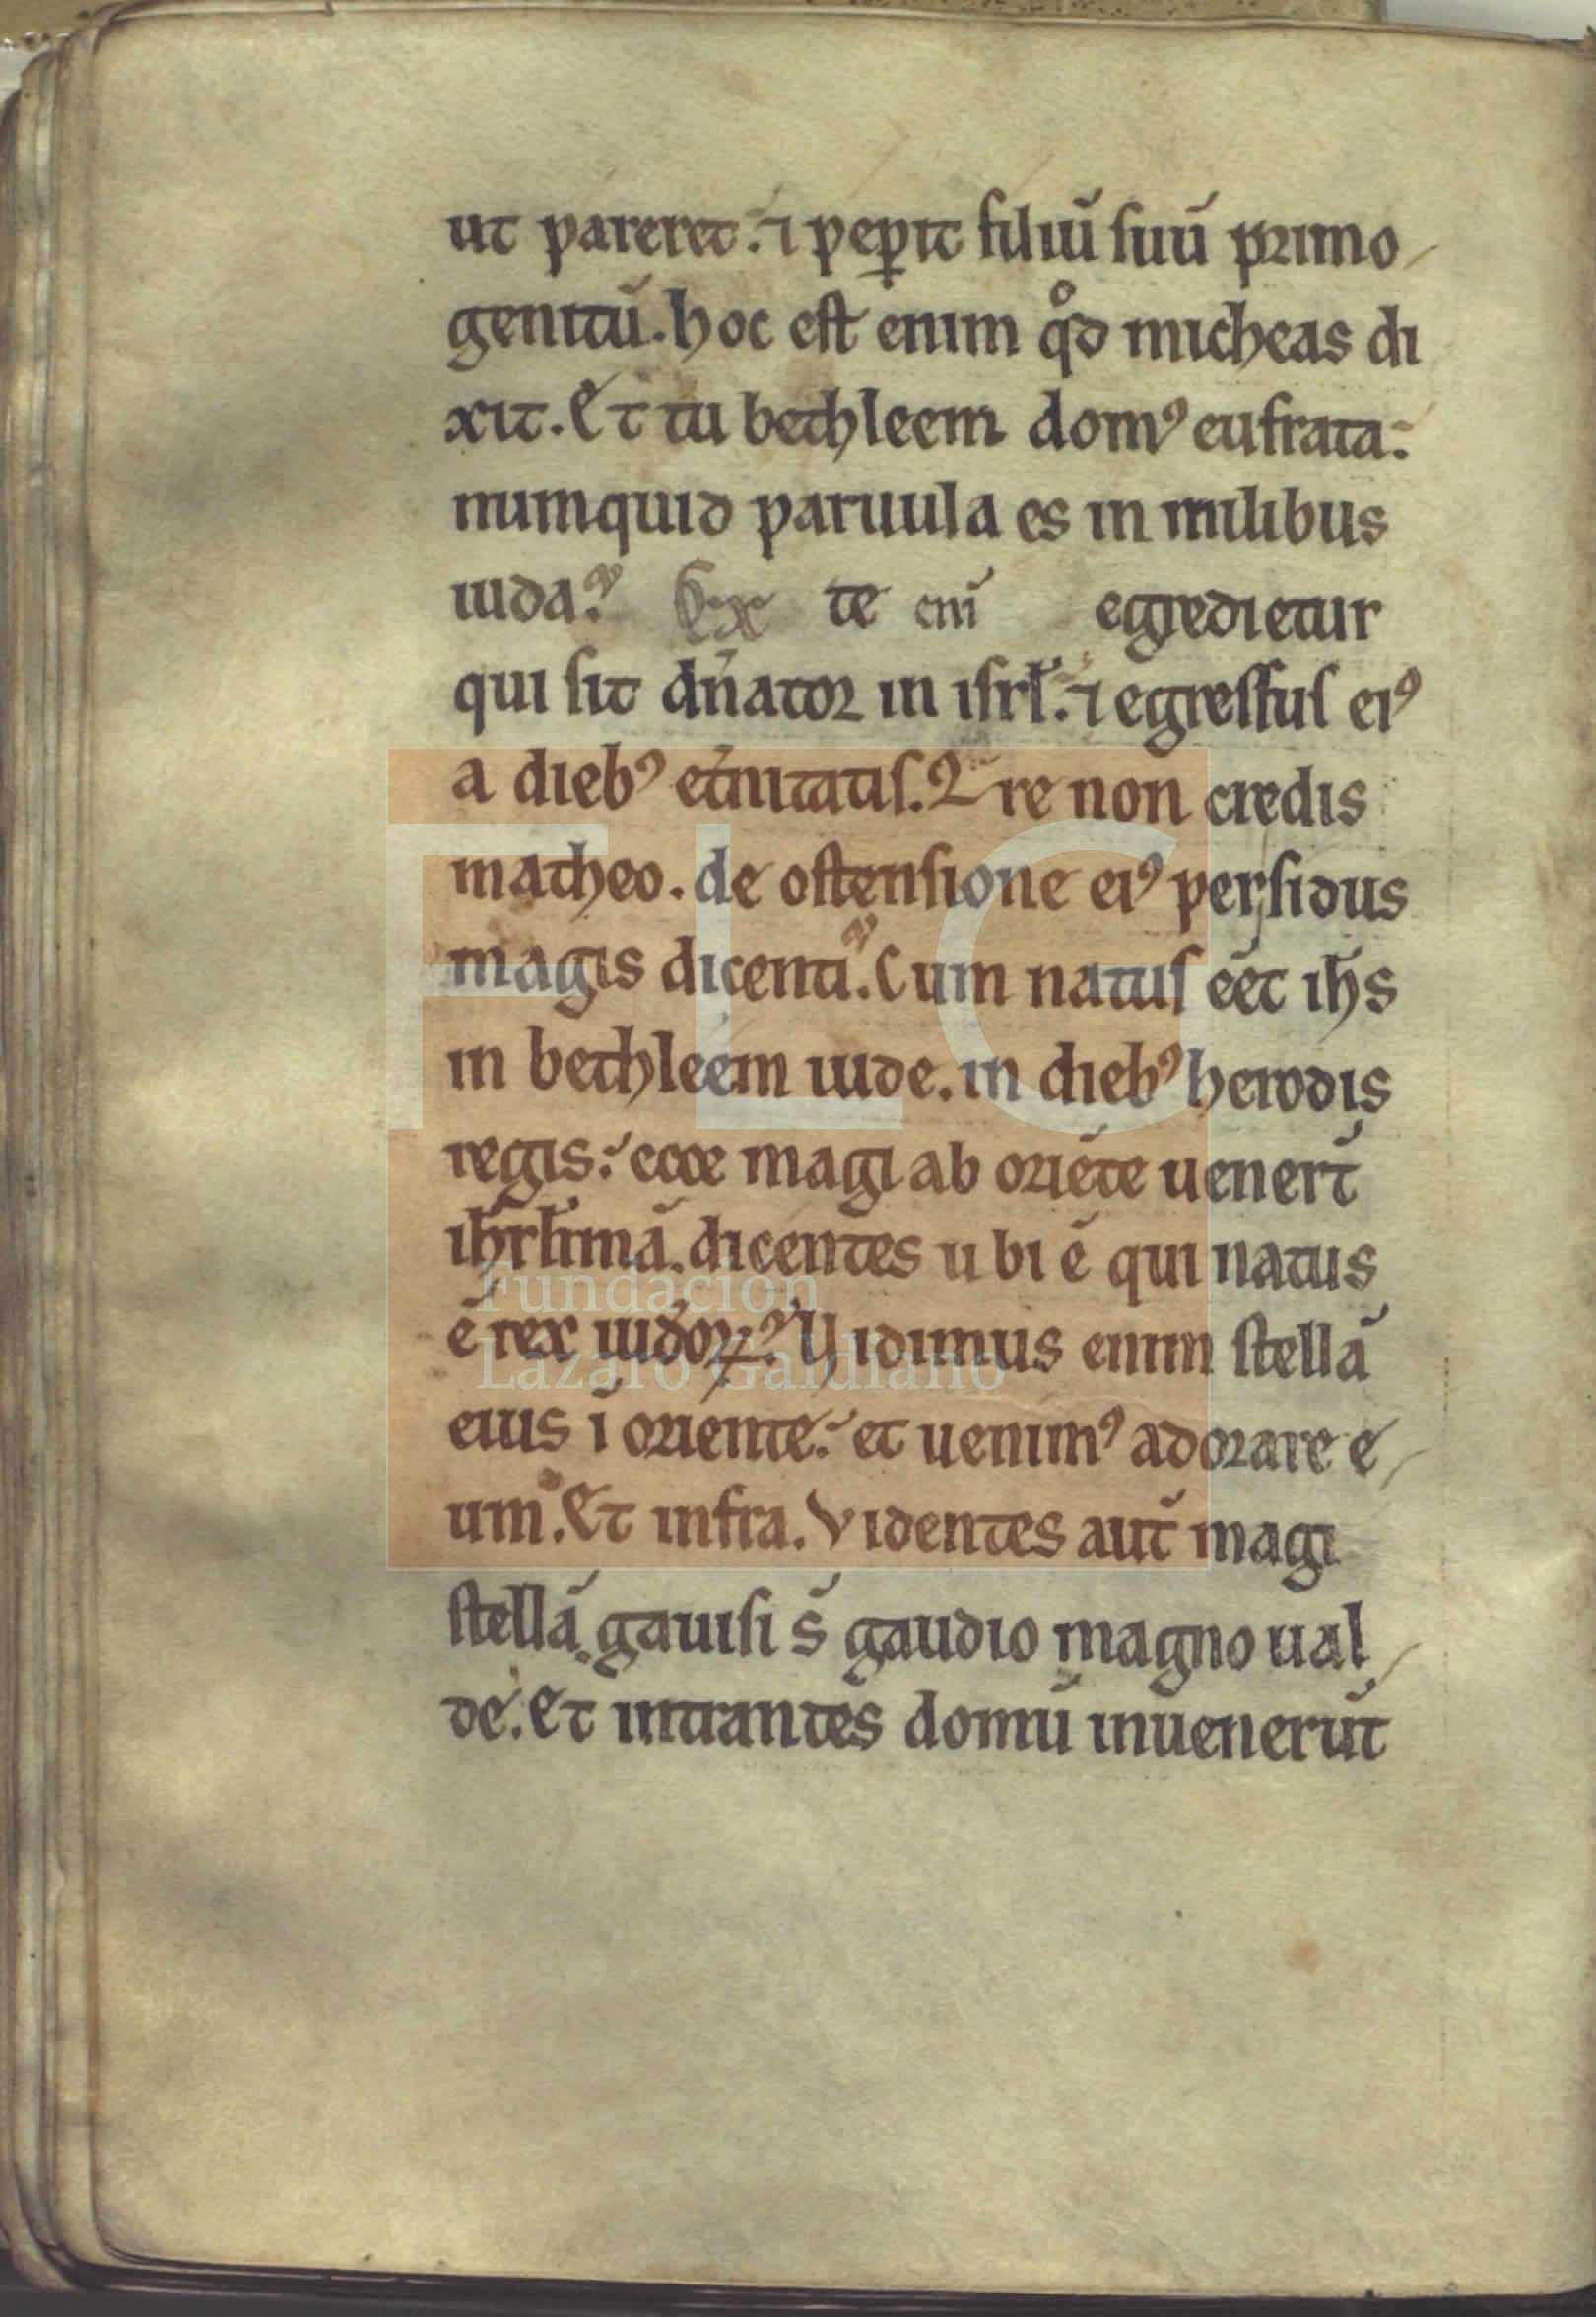 ut pareret. ⁊ pep̱it filiū suū primo
genitū. hoc est enim qͦd micheas di
xit. Et tu bethleem domꝰ eufrata.
numquid paruula es in milibus
iuda? Ex te eni̅ egredietur
qui sit dn̅ator in isrl̅. ⁊ egressus eiꝰ
a diebꝰ et̅nitatis. Q̅re non credis
matheo. de ostensione eiꝰ persidus
magis dicenti. Cum natus ee̅t ih̅s
in bethleem iude. in diebꝰ herodis
regis. ecce magi ab orie̅te uenert̅
ih̅rl̅imā. dicentes ubi ē qui natus
ē rex iud̅oꝝ? Vidimus enim stellā
eius ī oriente. et uenimꝰ adorare e
um. Et infra. Videntes aut̅ magi
stellā gauisi s̅ gaudio magno ual
de. Et intrantes domū inueneru̅t
FLG
Fundación
Lázaro Galdiano